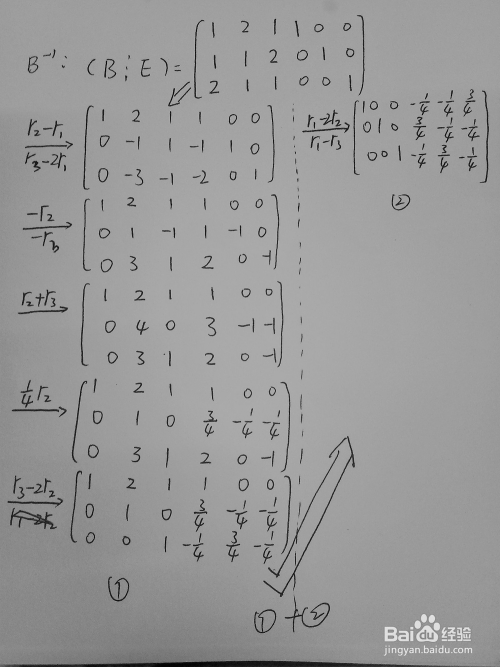 B⁻¹: (B¦E) = ( 1 2 1 1 0 0
1 1 2 0 1 0
2 1 1 0 0 1 )
r₂-r₁ / r₃-2r₁ → ( 1 2 1 1 0 0
0 -1 1 -1 1 0
0 -3 -1 -2 0 1 )
-r₂ / -r₃ → ( 1 2 1 1 0 0
0 1 -1 1 -1 0
0 3 1 2 0 -1 )
r₂+r₃ → ( 1 2 1 1 0 0
0 4 0 3 -1 -1
0 3 1 2 0 -1 )
¼r₂ → ( 1 2 1 1 0 0
0 1 0 3/4 -1/4 -1/4
0 3 1 2 0 -1 )
r₃-2r₂ → ( 1 2 1 1 0 0
0 1 0 3/4 -1/4 -1/4
0 0 1 -1/4 3/4 -1/4 )
①
r₁-2r₂ / r₁-r₃ → ( 1 0 0 -1/4 -1/4 3/4
0 1 0 3/4 -1/4 -1/4
0 0 1 -1/4 3/4 -1/4 )
②
①+②
Bai 经验
jingyan.baidu.com